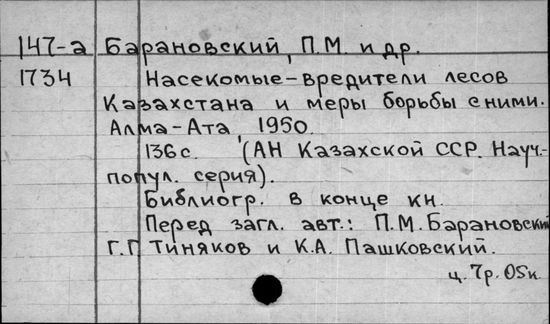 147-а Барановский, П.М. и др.
1734 Насекомые-вредители лесов
Казахстана и меры борьбы с ними.
Алма-Ата, 1950.
136с. (АН Казахской ССР. Науч.-
попул. серия).
Библиогр. в конце кн.
Перед загл. авт.: П.М. Барановский
Г.Г. Тиняков и К.А. Пашковский.
ц. 7р. 05к.